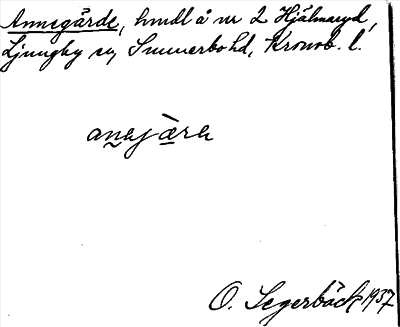 Annegärde, hmdl å nr 2 Hjälmaryd,
Ljungby sn, Sunnerbo hd, Kronob. l.
anejæra
O. Segerbäck 1937